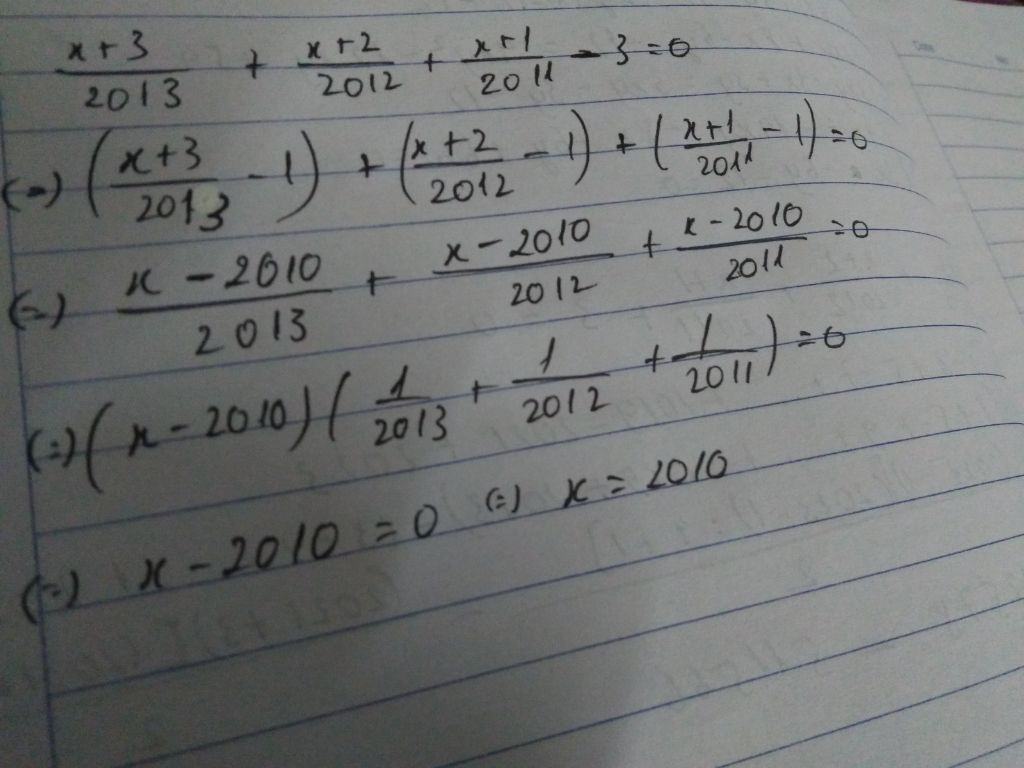 x+3/2013 + x+2/2012 + x+1/2011 - 3 = 0
(=) (x+3/2013 - 1) + (x+2/2012 - 1) + (x+1/2011 - 1) = 0
(=) x-2010/2013 + x-2010/2012 + x-2010/2011 = 0
(=) (x-2010)(1/2013 + 1/2012 + 1/2011) = 0
(=) x-2010 = 0 (=) x = 2010